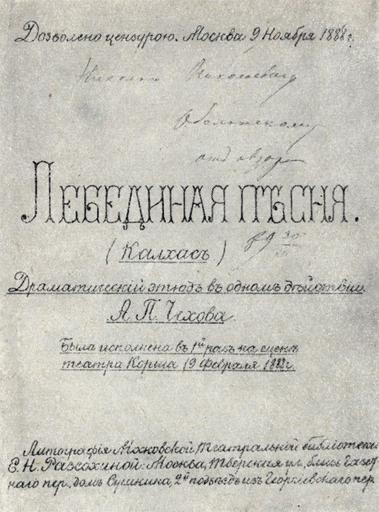 Дозволено цензурою. Москва 9 Ноября 1888 г.
Николаю
отъ автора
ЛЕБЕДИНАЯ ПѢСНЯ.
(Калхасъ)
89
Драматическій этюдъ въ одномъ дѣйствіи
А. П. Чехова.
Была исполнена въ 1й разъ на сценѣ
театра Корша 19 Февраля 1888 г.
Литографія Московской Театральной библіотеки
Е. Н. Разсохиной. Москва, Тверская пл., близь Газет-
наго пер., домъ Сушкина, 2й подъѣздъ изъ Георгіевскаго пер.